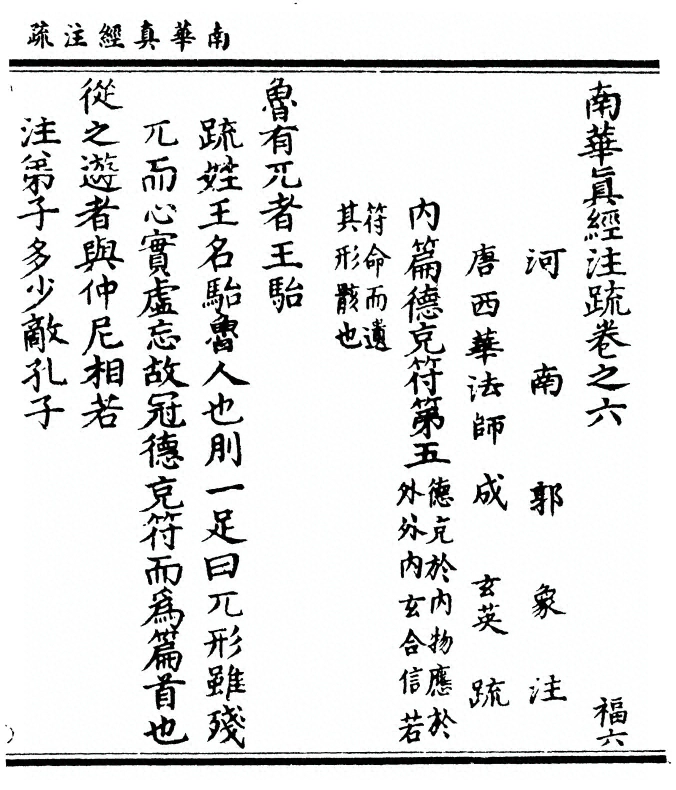 南華真經注疏
南華眞經注疏卷之六 福六
河南郭象注
唐西華法師成玄英疏
內篇德充符第五 德充於內物應於
外外內玄合信若
符命而遺
其形骸也
魯有兀者王駘
疏姓王名駘魯人也刖一足曰兀形雖殘
兀而心實虛忘故冠德充符而爲篇首也
從之遊者與仲尼相若
注弟子多少敵孔子